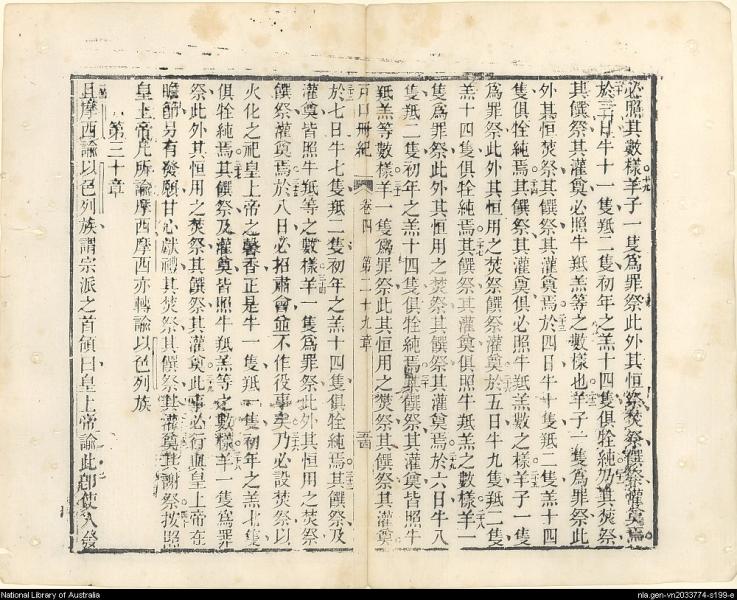 必照其數樣羊子一隻爲罪祭此外其恒祭焚祭饌祭灌奠焉
於三日牛十一隻羝二隻初年之羔十四隻俱牷純乃其焚祭
其饌祭其灌奠必照牛羝羔等之數樣也羊子一隻爲罪祭此
外其恒焚祭其饌祭其灌奠焉於四日牛十隻羝二隻羔十四
隻俱牷純焉其饌祭其灌奠俱必照牛羝羔數之樣羊子一隻
爲罪祭此外其恒用之焚祭饌祭灌奠於五日牛九隻羝二隻
羔十四隻俱牷純焉其饌祭其灌奠俱照牛羝羔之數樣羊一
隻爲罪祭此外其恒用之焚祭其饌祭其灌奠焉於六日牛八
隻羝二隻初年之羔十四隻俱牷純焉其饌祭其灌奠皆照牛
羝羔等數樣羊一隻爲罪祭此其恒用之焚祭其饌祭其灌奠
戶口冊紀 卷四 第二十九章
於七日牛七隻羝二隻初年之羔十四隻俱牷純焉其饌祭及
灌奠皆照牛羝等之數樣羊一隻爲罪祭此外其恒用之焚祭
饌祭灌奠焉於八日必招肅會並不作役事矣乃必設焚祭以
火化之祀皇上帝之馨香正是牛一隻羝一隻初年之羔七隻
俱牷純焉其饌祭及灌奠皆照牛羝羔等之數樣羊一隻爲罪
祭此外其恒用之焚祭其饌祭其灌奠此事必行與皇上帝在
瞻節另有發願甘心獻禮其焚祭其饌祭其灌奠其謝祭按照
皇上帝凡所諭摩西摩西亦轉諭以色列族
第三十章
且摩西諭以色列族謂宗派之首領曰皇上帝諭此卽使人發
National Library of Australia
nla.gen-vn2033774-s199-e